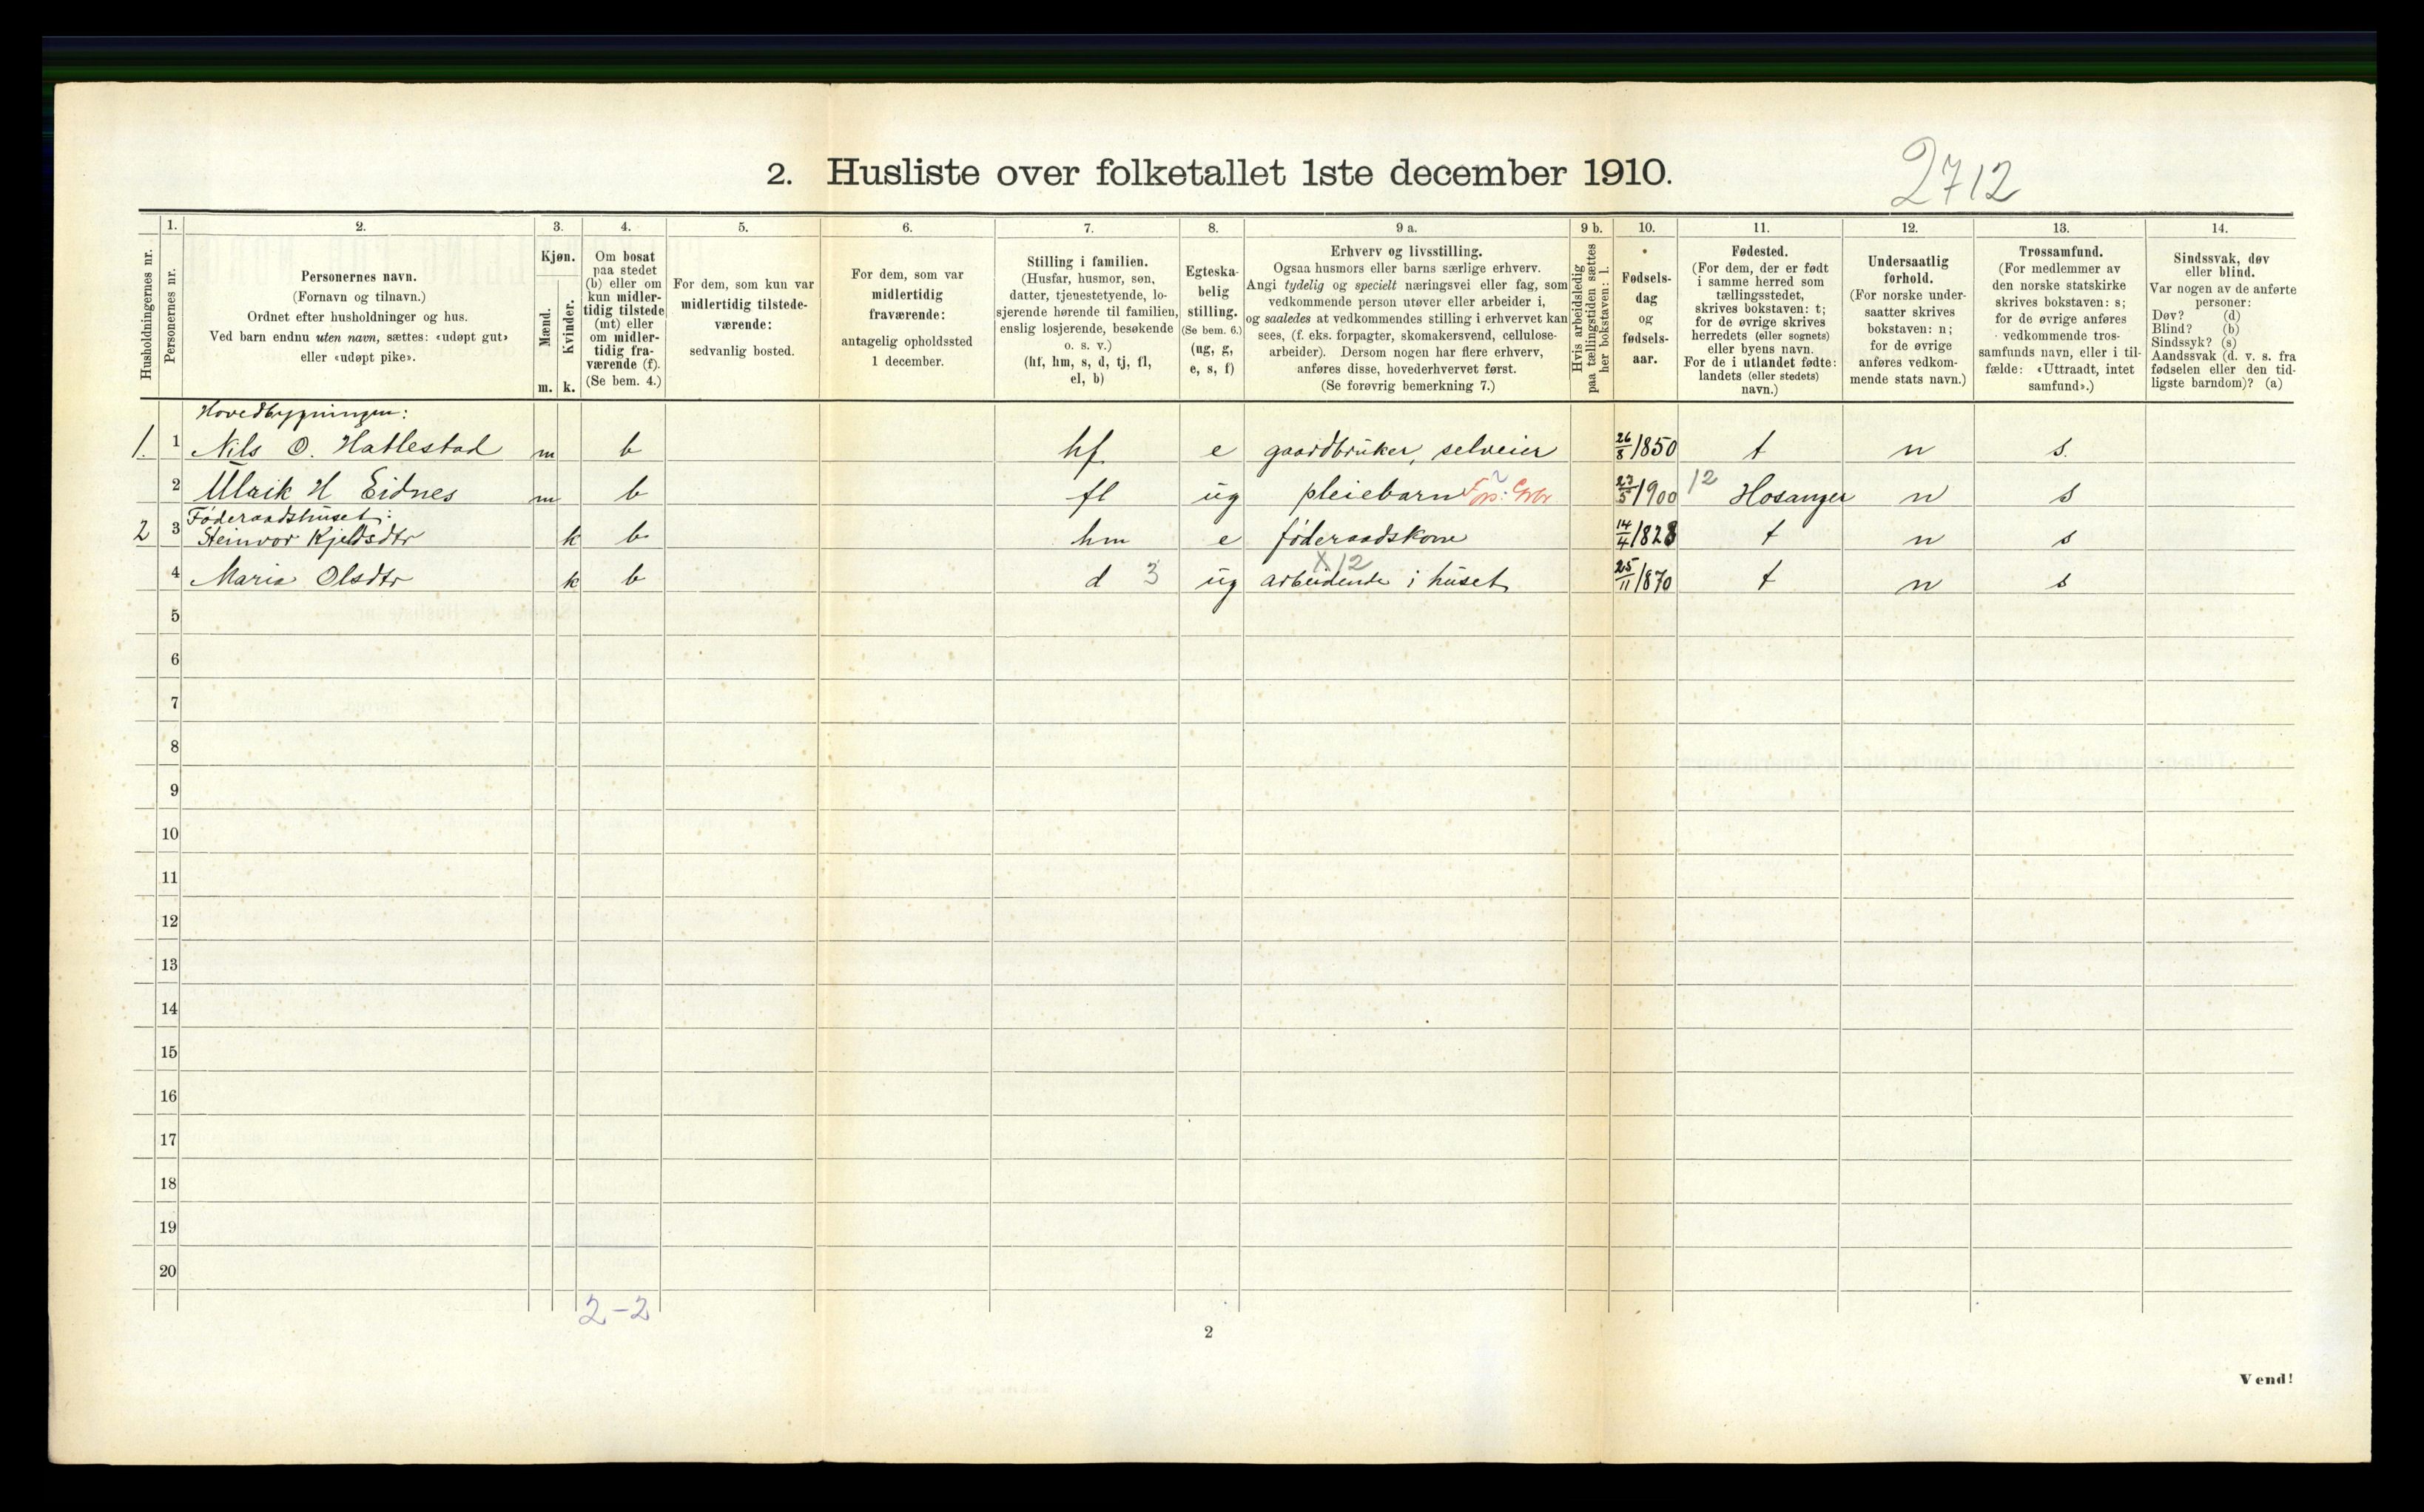 2. Husliste over folketallet 1ste december 1910.
2712
Husholdningernes nr.
1.
Personernes nr.
2.
Personernes navn.
(Fornavn og tilnavn.)
Ordnet efter husholdninger og hus.
Ved barn endnu uten navn, sættes: «udøpt gut»
eller «udøpt pike».
3.
Kjøn.
Mænd.
Kvinder.
m. k.
4.
Om bosat
paa stedet
(b) eller om
kun midler-
tidig tilstede
(mt) eller
om midler-
tidig fra-
værende (f).
(Se bem. 4.)
5.
For dem, som kun var
midlertidig tilstede-
værende:
sedvanlig bosted.
6.
For dem, som var
midlertidig
fraværende:
antagelig opholdssted
1 december.
7.
Stilling i familien.
(Husfar, husmor, søn,
datter, tjenestetyende, lo-
sjerende hørende til familien,
enslig losjerende, besøkende
o. s. v.)
(hf, hm, s, d, tj, fl,
el, b)
8.
Egteska-
belig
stilling.
(Se bem. 6.)
(ug, g,
e, s, f)
9 a.
Erhverv og livsstilling.
Ogsaa husmors eller barns særlige erhverv.
Angi tydelig og specielt næringsvei eller fag, som
vedkommende person utøver eller arbeider i,
og saaledes at vedkommendes stilling i erhvervet kan
sees, (f. eks. forpagter, skomakersvend, cellulose-
arbeider). Dersom nogen har flere erhverv,
anføres disse, hovederhvervet først.
(Se forøvrig bemerkning 7.)
9 b.
Hvis arbeidsledig
paa tællingstiden sættes
her bokstaven: l.
10.
Fødsels-
dag
og
fødsels-
aar.
11.
Fødested.
(For dem, der er født
i samme herred som
tællingsstedet,
skrives bokstaven: t;
for de øvrige skrives
herredets (eller sognets)
eller byens navn.
For de i utlandet fødte:
landets (eller stedets)
navn.)
12.
Undersaatlig
forhold.
(For norske under-
saatter skrives
bokstaven: n;
for de øvrige
anføres vedkom-
mende stats navn.)
13.
Trossamfund.
(For medlemmer av
den norske statskirke
skrives bokstaven: s;
for de øvrige anføres
vedkommende tros-
samfunds navn, eller i til-
fælde: «Uttraadt, intet
samfund».)
14.
Sindssvak, døv
eller blind.
Var nogen av de anførte
personer:
Døv? (d)
Blind? (b)
Sindssyk? (s)
Aandssvak (d. v. s. fra
fødselen eller den tid-
ligste barndom)? (a)
Hovedbygningen:
1. 1 Nils O. Hatlestad m b hf e gaardbruker, selveier 26/8 1850 t n s.
2 Ulrik H Eidnes m b fl ug pleiebarn 23/5 1900 12 Hosanger n s
Føderaadshuset:
2 3 Steinvor Kjeldsdtr k b hm e føderaadskone 14/4 1828 t n s
X12
4 Maria Olsdtr k b d 3 ug arbeidende i huset 25/11 1870 t n s
5
6
7
8
9
10
11
12
13
14
15
16
17
18
19
20
2-2
2
Vend!